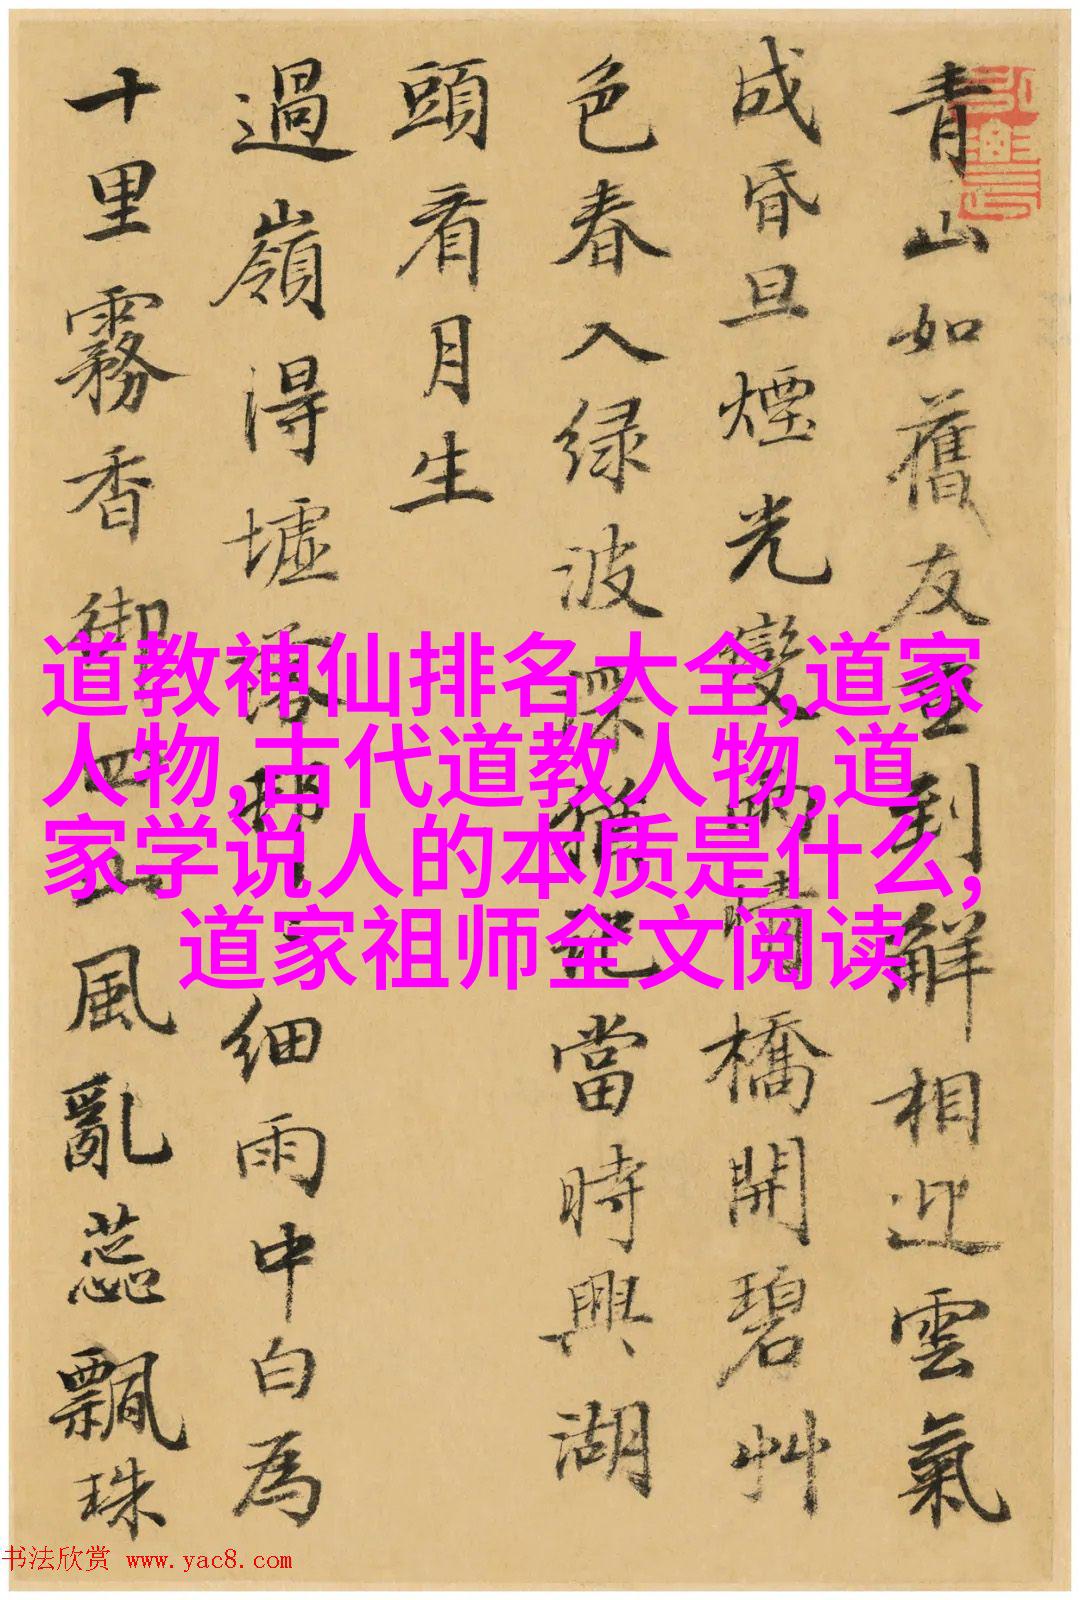 青山如舊友重到解相迎雲氣
成昏旦煙光變雨晴橋開碧艸
色春入绿波深猶記當時興湖
頭看月生
過嶺得墟落邨細雨中白為
十里霧香御四山風亂蕊飄珠
道教神仙排名大全,道家
人物,古代道教人物,道
家学说人的本质是什么,
道家祖师全文阅读
书法欣赏 www.yac8.com